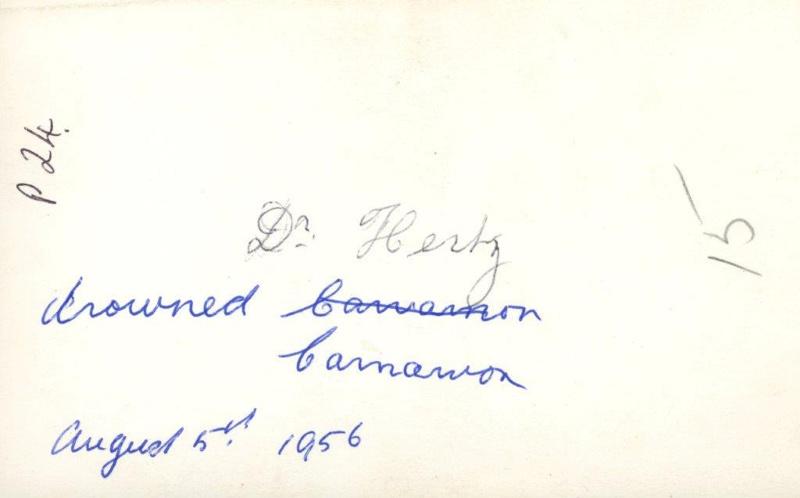 P 24.
Dr. Hertz
drowned Carnarnon
Carnarvon
August 5st. 1956
15